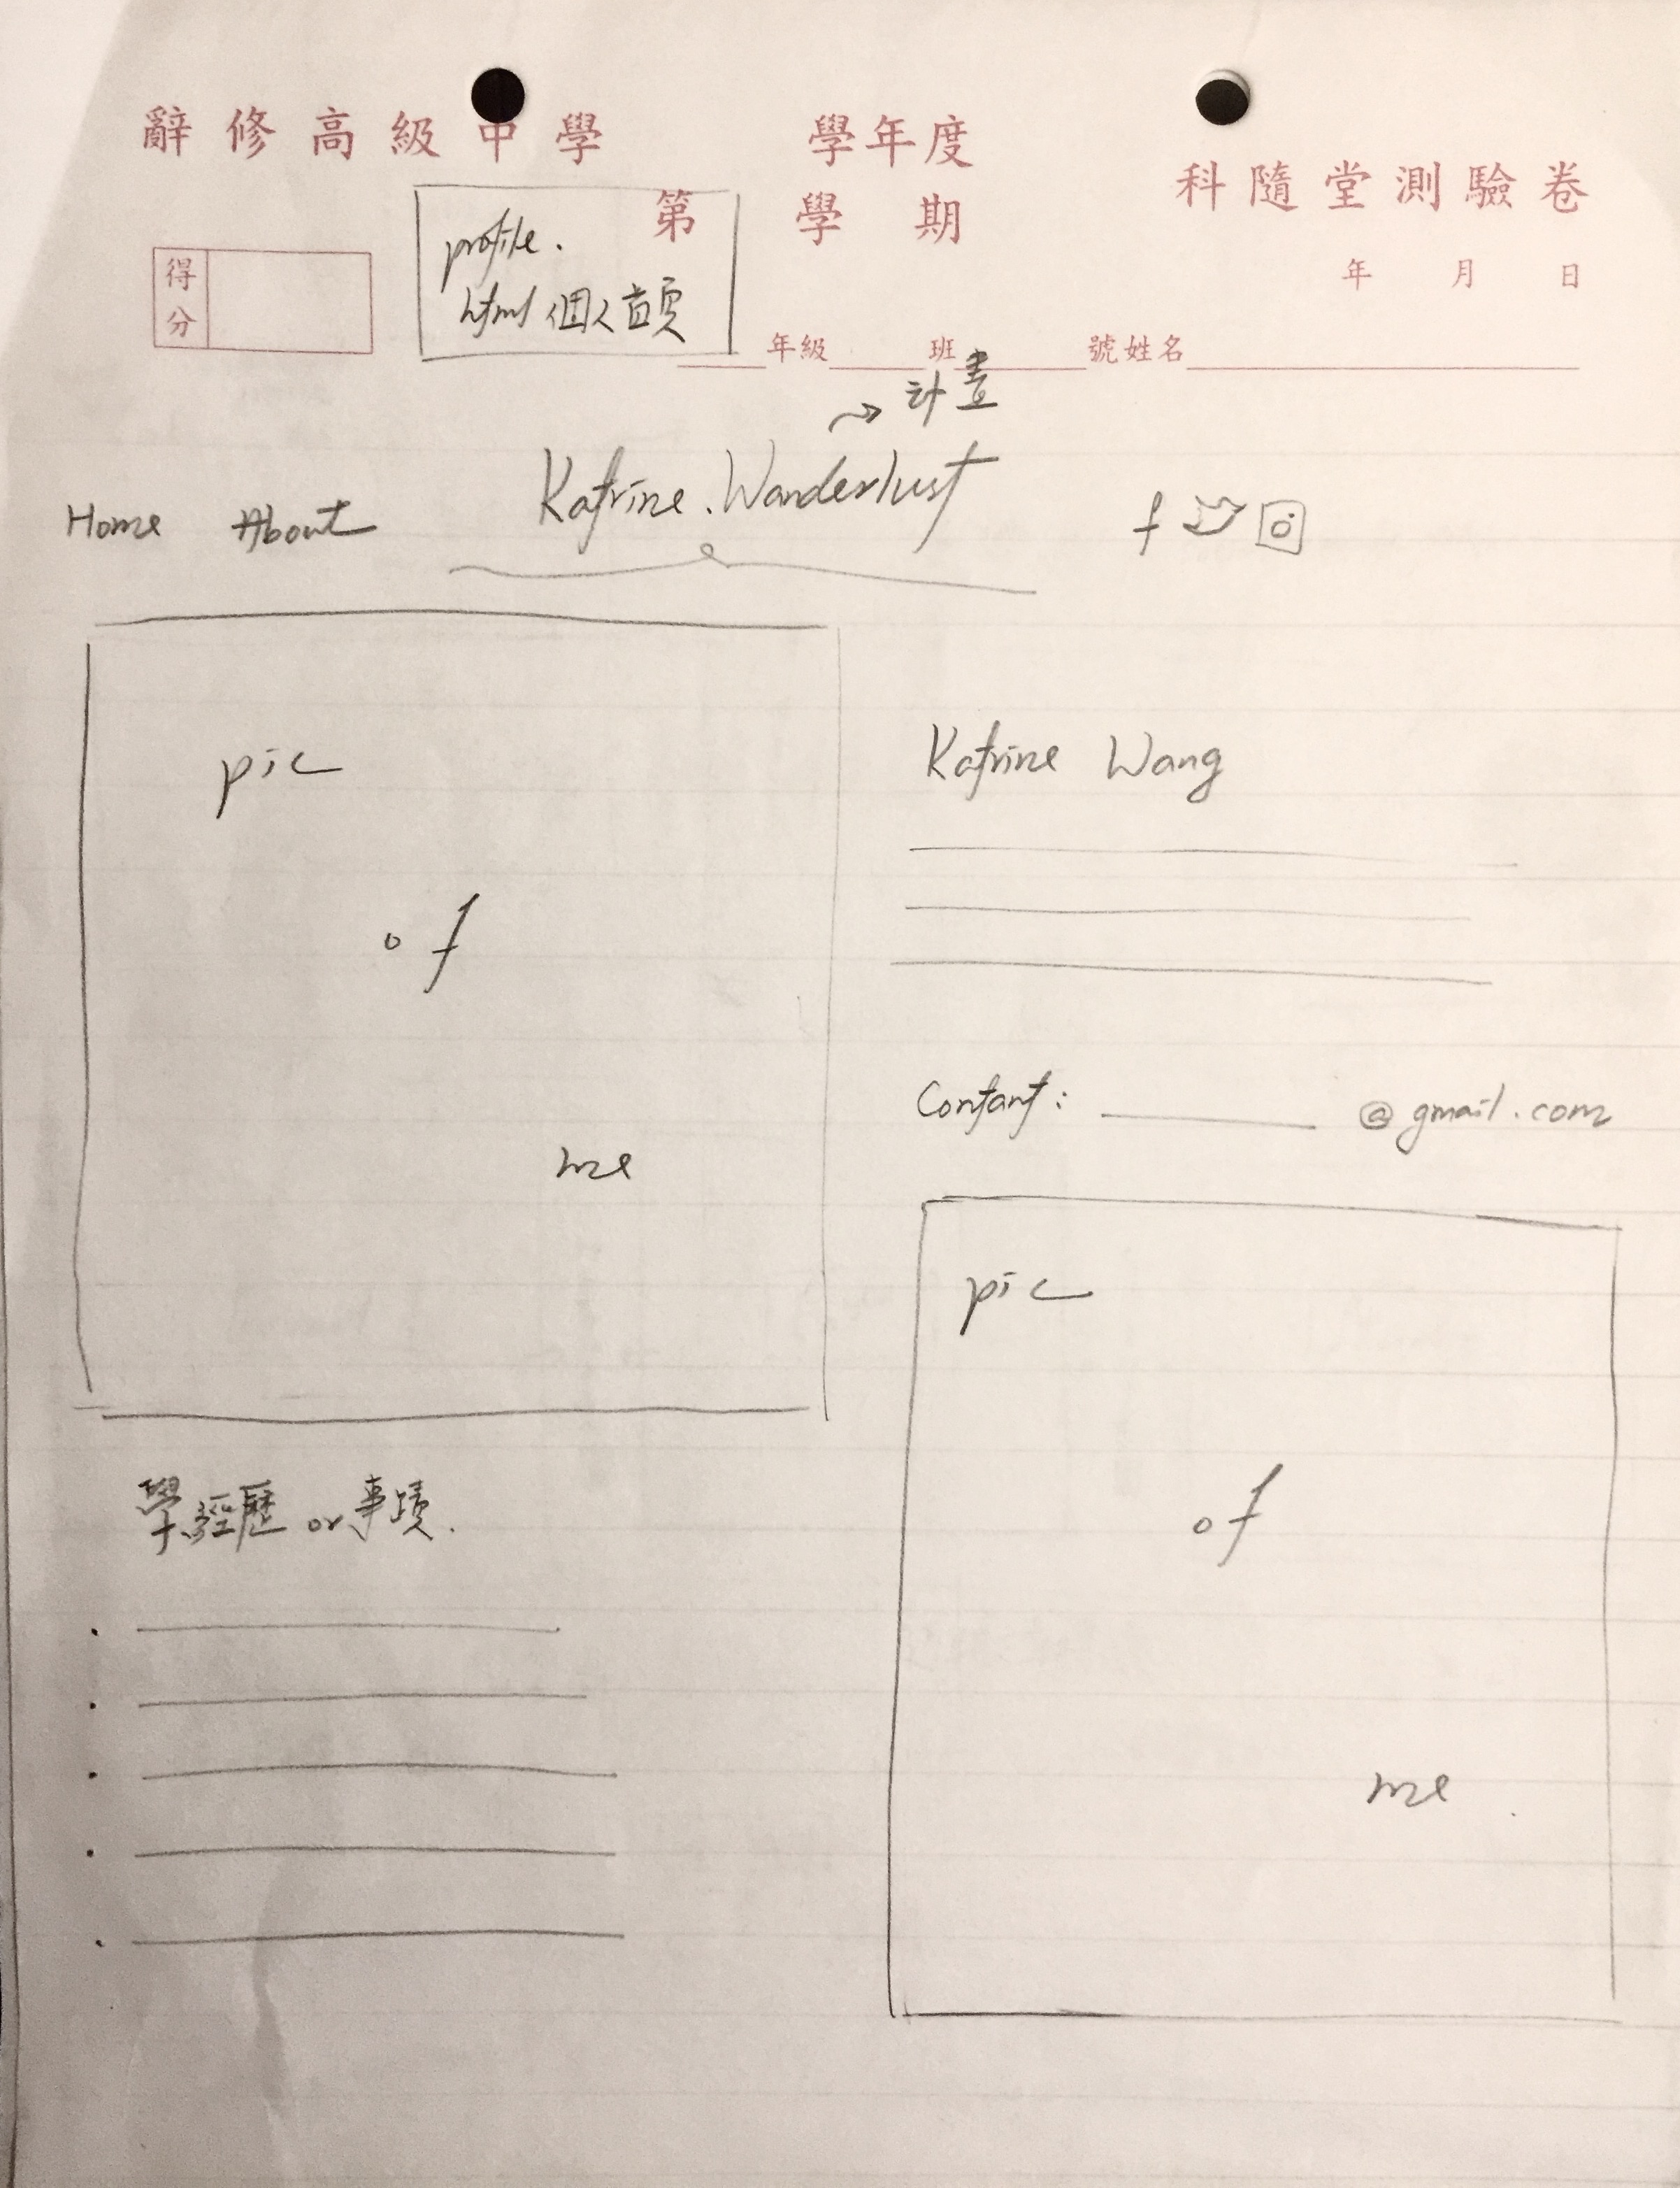 辭修高級中學
學年度
第 學 期
科隨堂測驗卷
年 月 日
得分
profile.
html 個人首頁
年級 班 號姓名
→ 計畫
Home About
Katrine.Wanderlust
f
pic
of
me
Katrine Wang
Contant: @gmail.com
pic
of
me
學經歷 or 事蹟.